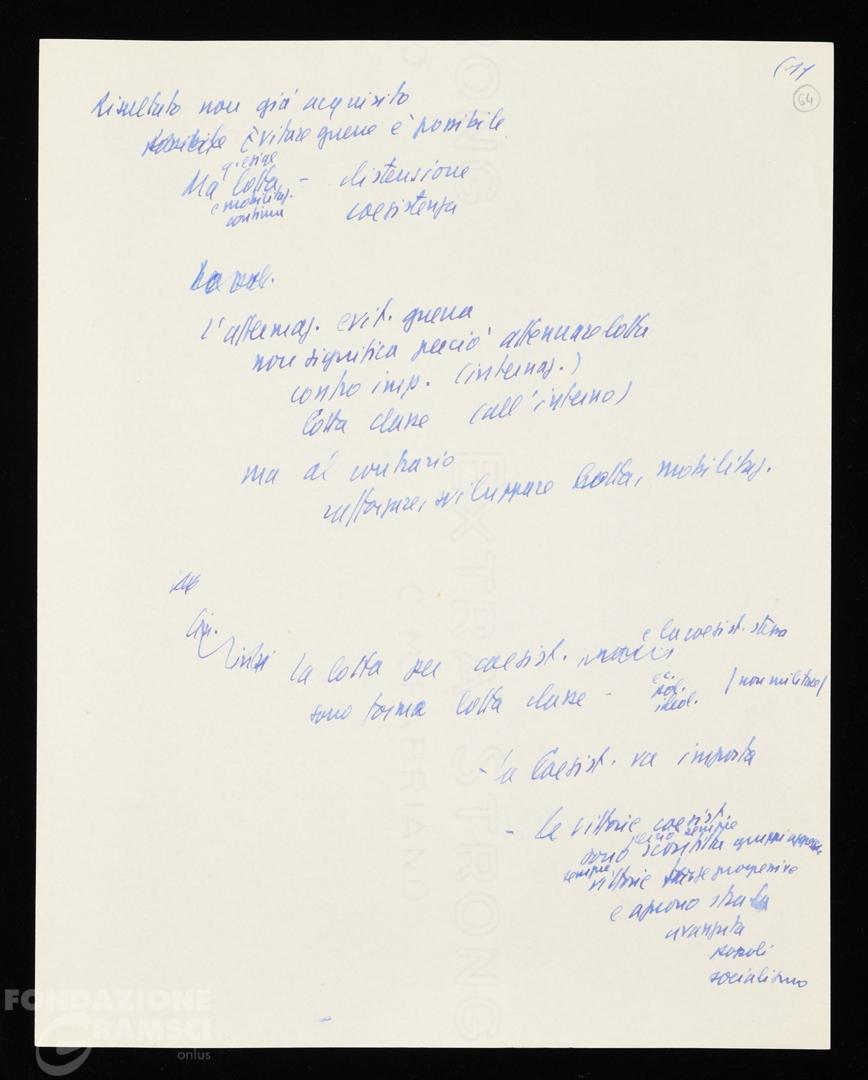 (11
64
Risultato non già acquisito
possibile Evitare guerre è possibile
q. esige
Ma lotta - distensione
e mobilitaz. coesistenza
continua
L'affermaz. evit. guerra
non significa perciò attenuare lotta
contro imp. (internaz.)
lotta classe (all'interno)
ma al contrario
rafforzare, sviluppare lotta, mobilitaz.
Cin.
e la coesist. stessa
La lotta per coesist.
sono forma lotta classe - ec. (non militare)
pol.
ideol.
- la Coesist. va imposta
- Le vittorie coesist.
sempre
sono sconfitta gruppi
sempre vittorie forze progressive
e aprono strada
avanzata
popoli
socialismo
FONDAZIONE
GRAMSCI
onlus
EXTRA STRONG